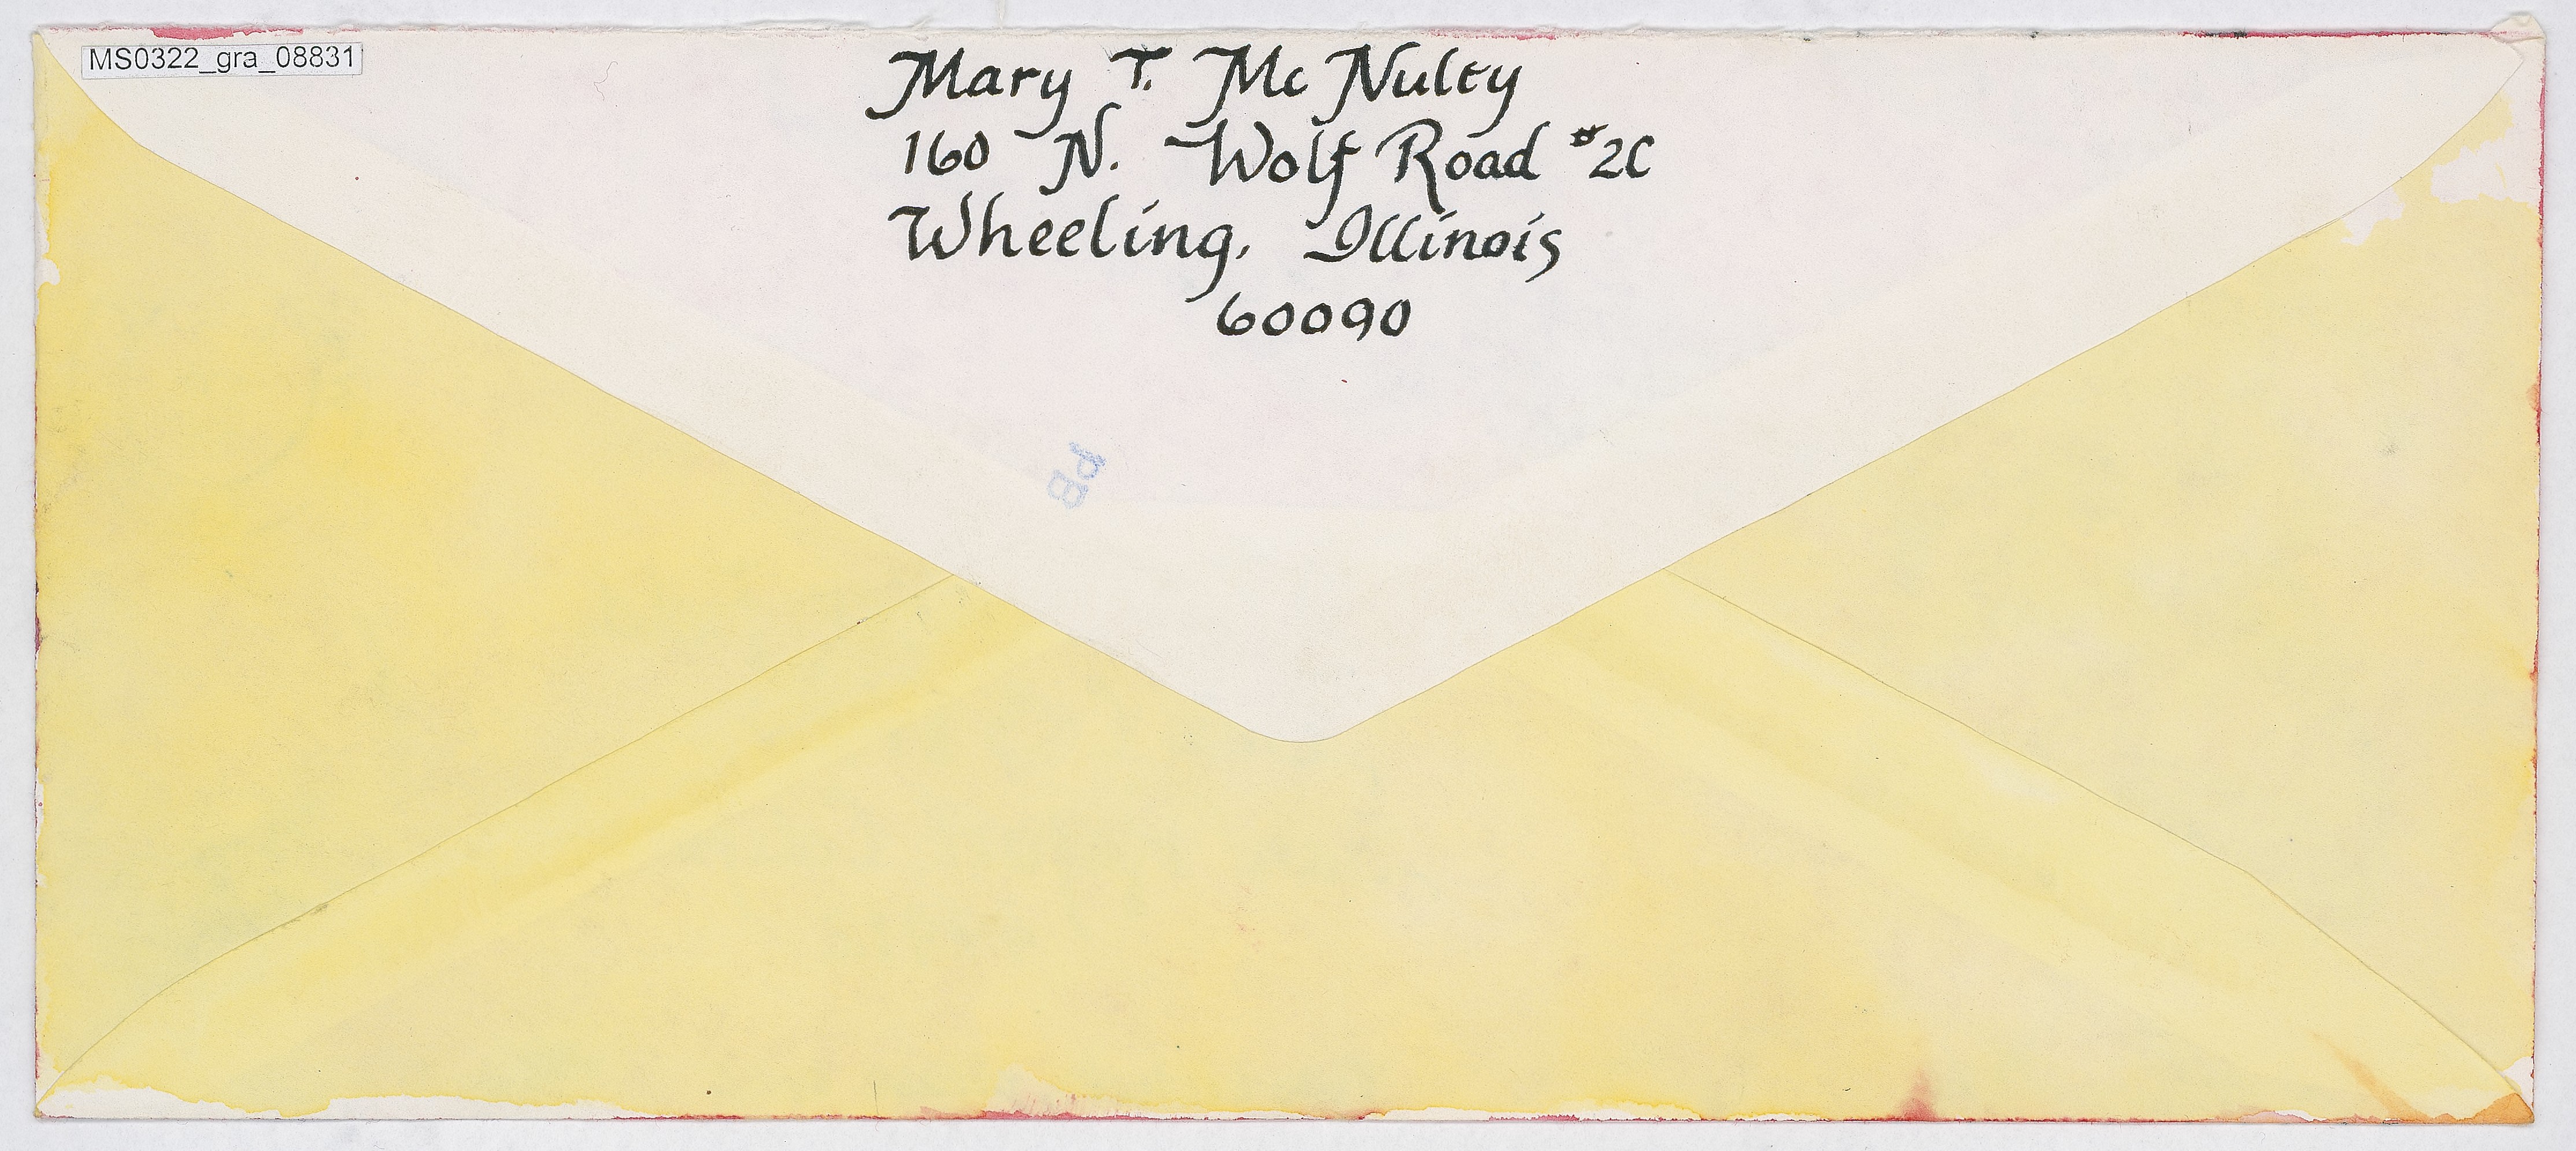 MS0322_gra_08831
Mary T. McNulty
160 N. Wolf Road #2C
Wheeling, Illinois
60090
PB